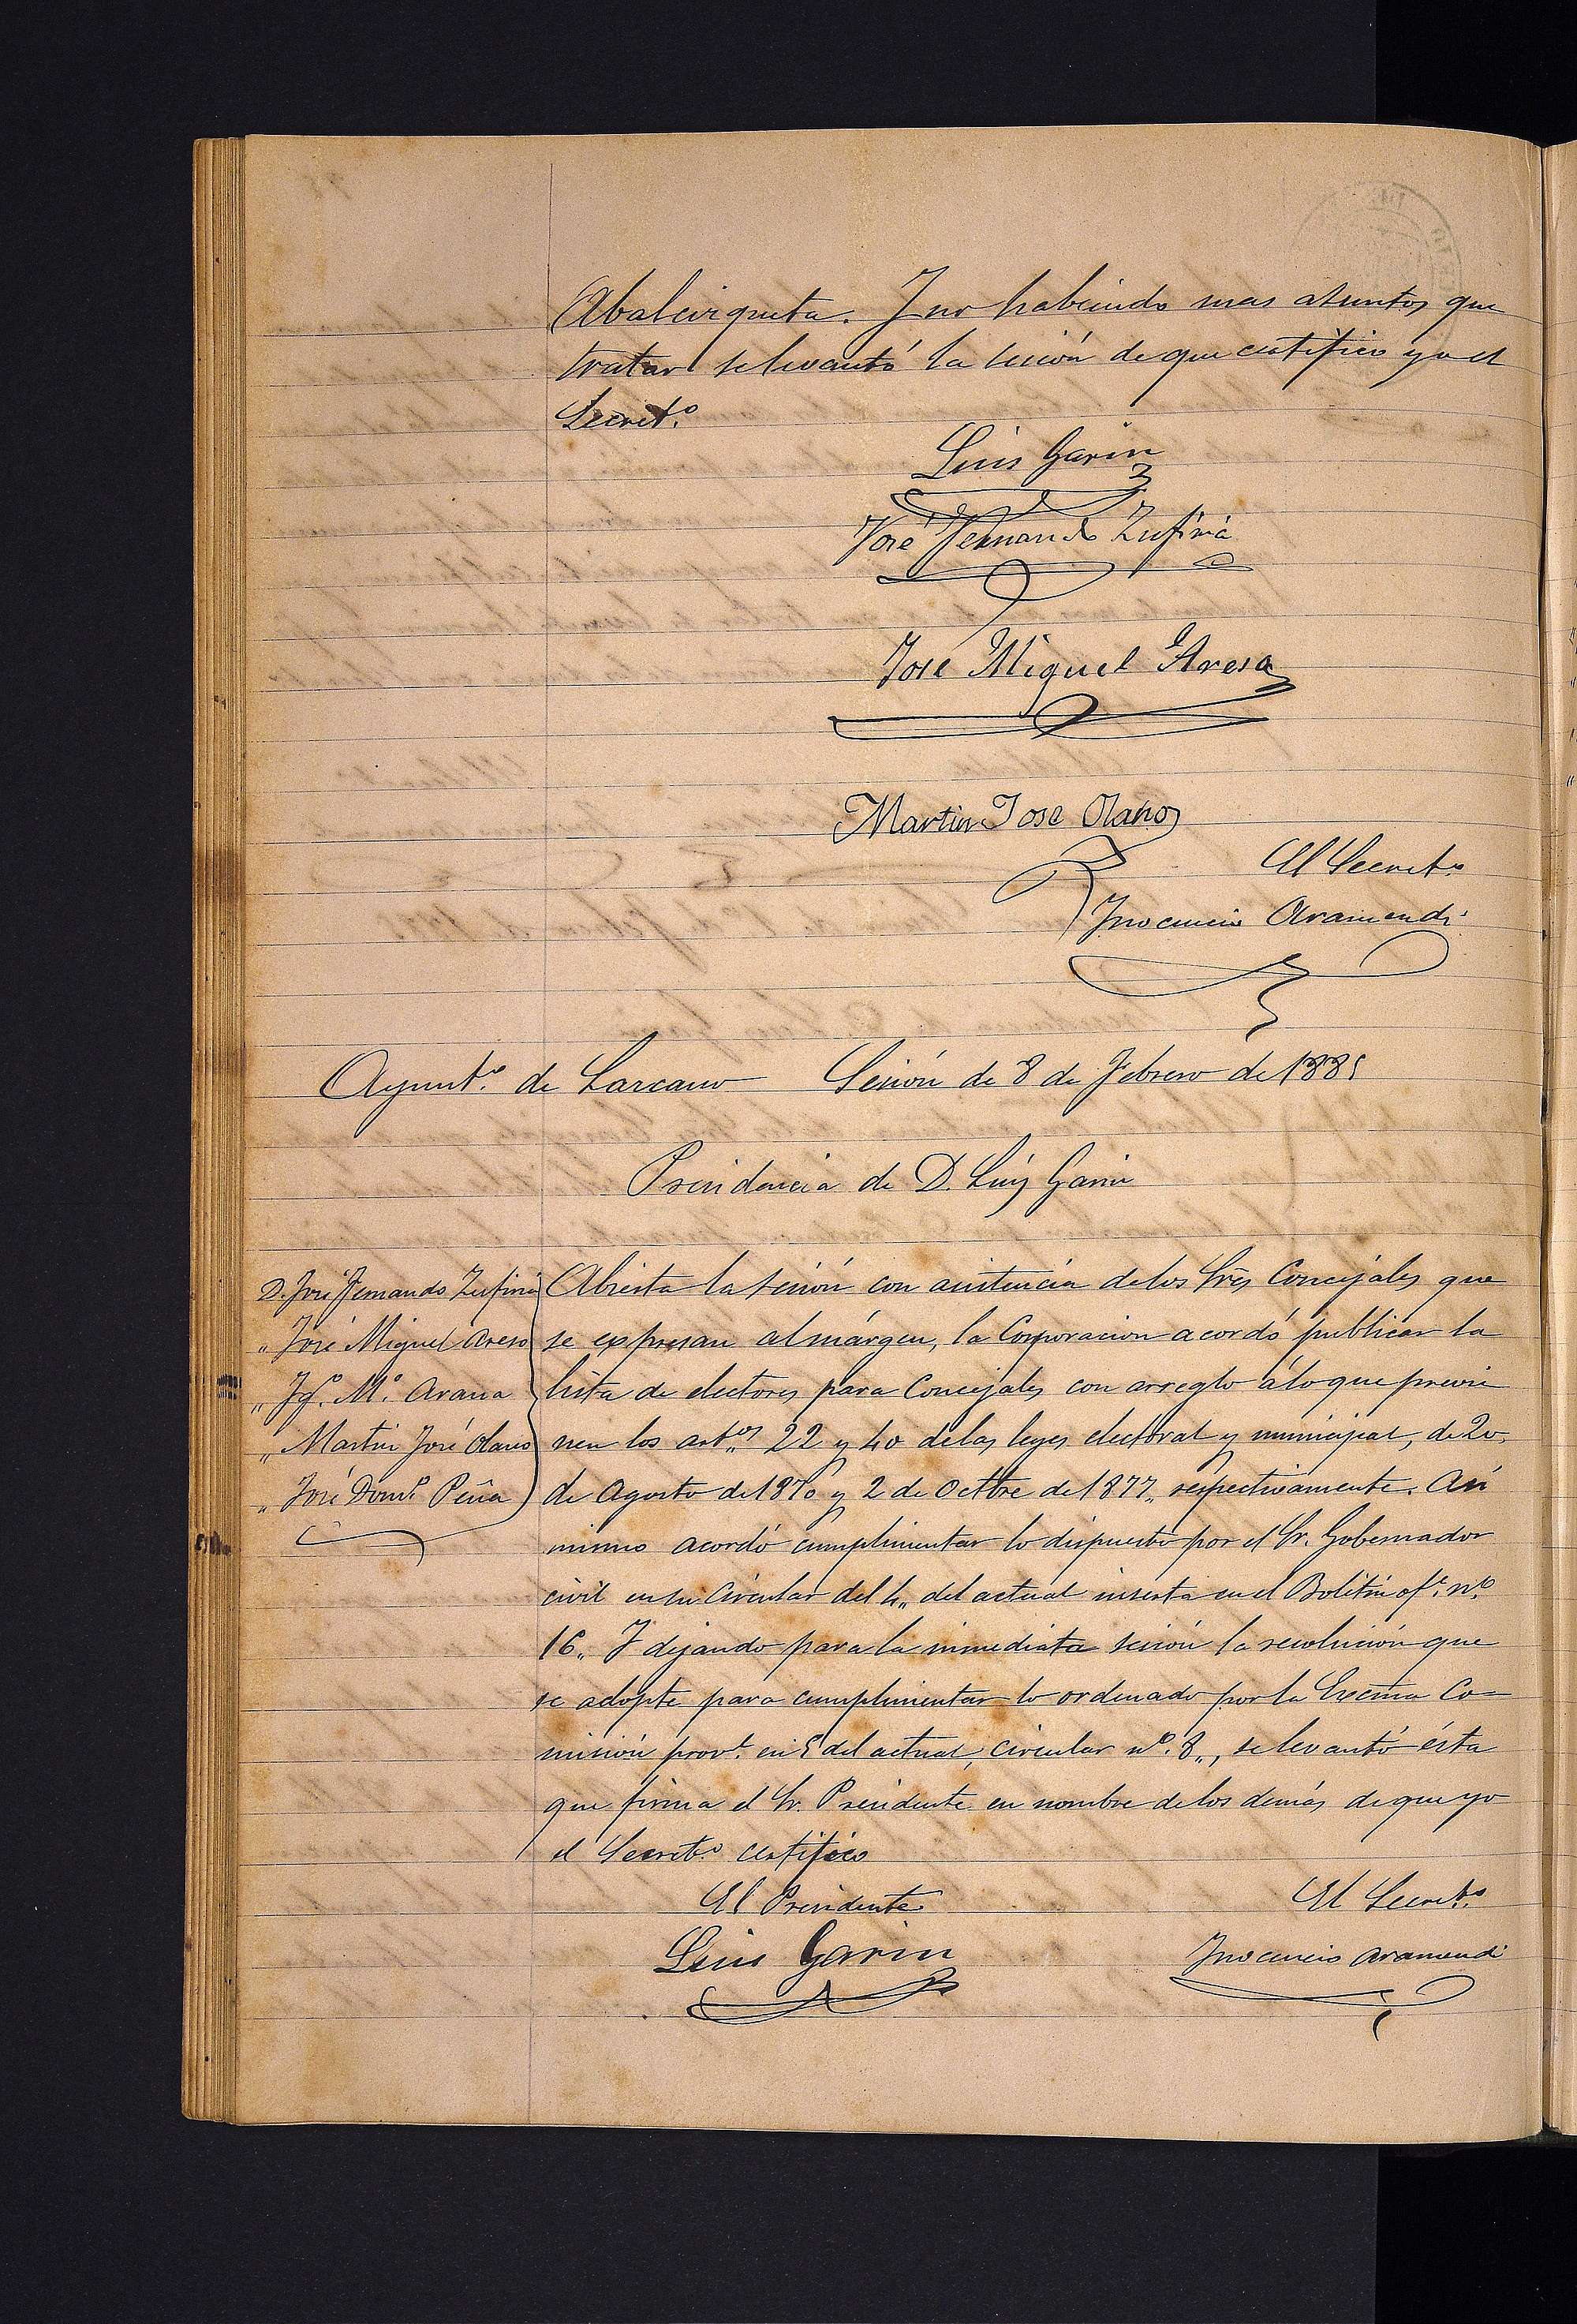 Abalcisqueta. Y no habiendo mas asuntos que
tratar se levantó la sesión de que certifico yo el
Secretº
Luis Garin
José Fernando Zufiria
José Miguel Areso
Martin José Olano
El Secretº
Inocencio Aramendi
Ayuntº de Lazcano Sesión de 8 de Febrero de 1885
Presidencia de D. Luis Garin
D. José Fernando Zufiria
" José Miguel Areso
" Jº Mª Arana
" Martin José Olano
" José Domº Peña
Abierta la sesión con asistencia de los Sres Concejales que
se expresan al márgen, la Corporacion acordó publicar la
lista de electores para Concejales con arreglo á lo que previe
nen los artos 22 y 40 de las leyes electoral y municipal, de 20
de Agosto de 1870 y 2 de Octbre de 1877 respectivamente. Asi
mismo acordó cumplimentar lo dispuesto por el Sr. Gobernador
civil en su Circular del 4 del actual inserta en el Boletin ofl nº
16. Y dejando para la inmediata sesión la resolución que
se adopte para cumplimentar lo ordenado por la Excma Co=
misión provl en 5 del actual, circular nº 8, se levantó ésta
que firma el Sr. Presidente en nombre de los demás de que yo
el Secretº certifico
El Presidente El Secretº
Luis Garin Inocencio Aramendi